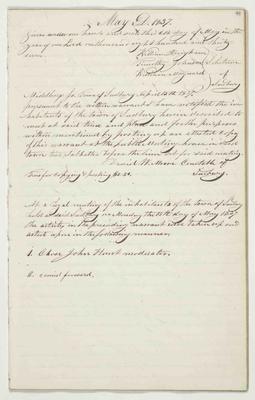 May A.D. 1837.
Given under our hands and seals this 6th day of May in the
year one thousand eight hundred and thirty
seven.
William Brigham
Timothy Johnson Selectmen
William Maynard of
Sudbury
Middlesex ss. Town of Sudbury
pursuant to the within warrant I have notified the in-
habitants of the town of Sudbury herein described to
meet at said time and place and for the purposes
within mentioned by posting up an attested copy
of this warrant at the public meeting house in said
town two Sabbaths before the time set for said meeting.
Constable of
Sudbury.
Fees for copying & posting
At a legal meeting of the inhabitants of the town of Sudbury
held at said Sudbury on Monday the 15th day of May 1837
the articles in the preceding warrant were taken up and
acted upon in the following manner,
1. Chose John Hunt moderator.